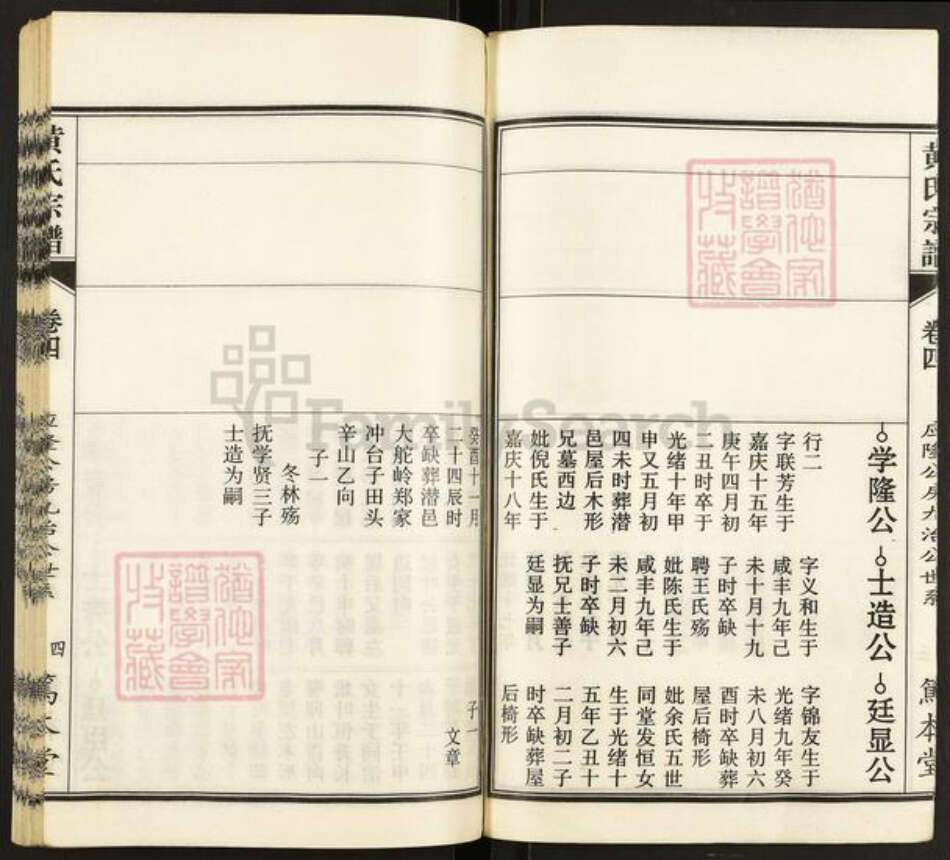 黄氏宗谱
卷四
应隆公房九治公世系
笃本堂
学隆公
士造公
廷显公
行二
字联芳生于
嘉庆十五年
庚午四月初
二丑时卒于
光绪十年甲
申又五月初
四未时葬潜
邑屋后木形
兄墓西边
妣倪氏生于
嘉庆十八年
字义和生于
咸丰九年己
未十月十九
子时卒缺
聘王氏殇
妣陈氏生于
咸丰九年己
未二月初六
子时卒缺
抚兄士善子
廷显为嗣
字锦友生于
光绪九年癸
未八月初六
酉时卒缺葬
屋后椅形
妣余氏五世
同堂发恒女
生于光绪十
五年乙丑十
二月初二子
时卒缺葬屋
后椅形
癸酉十一月
二十四辰时
卒缺葬潜邑
大舵岭郑家
冲台子田头
辛山乙向
子一
冬林殇
抚学贤三子
士造为嗣
子一
文章
黄氏宗谱
卷四
四
笃本堂
FamilySearch